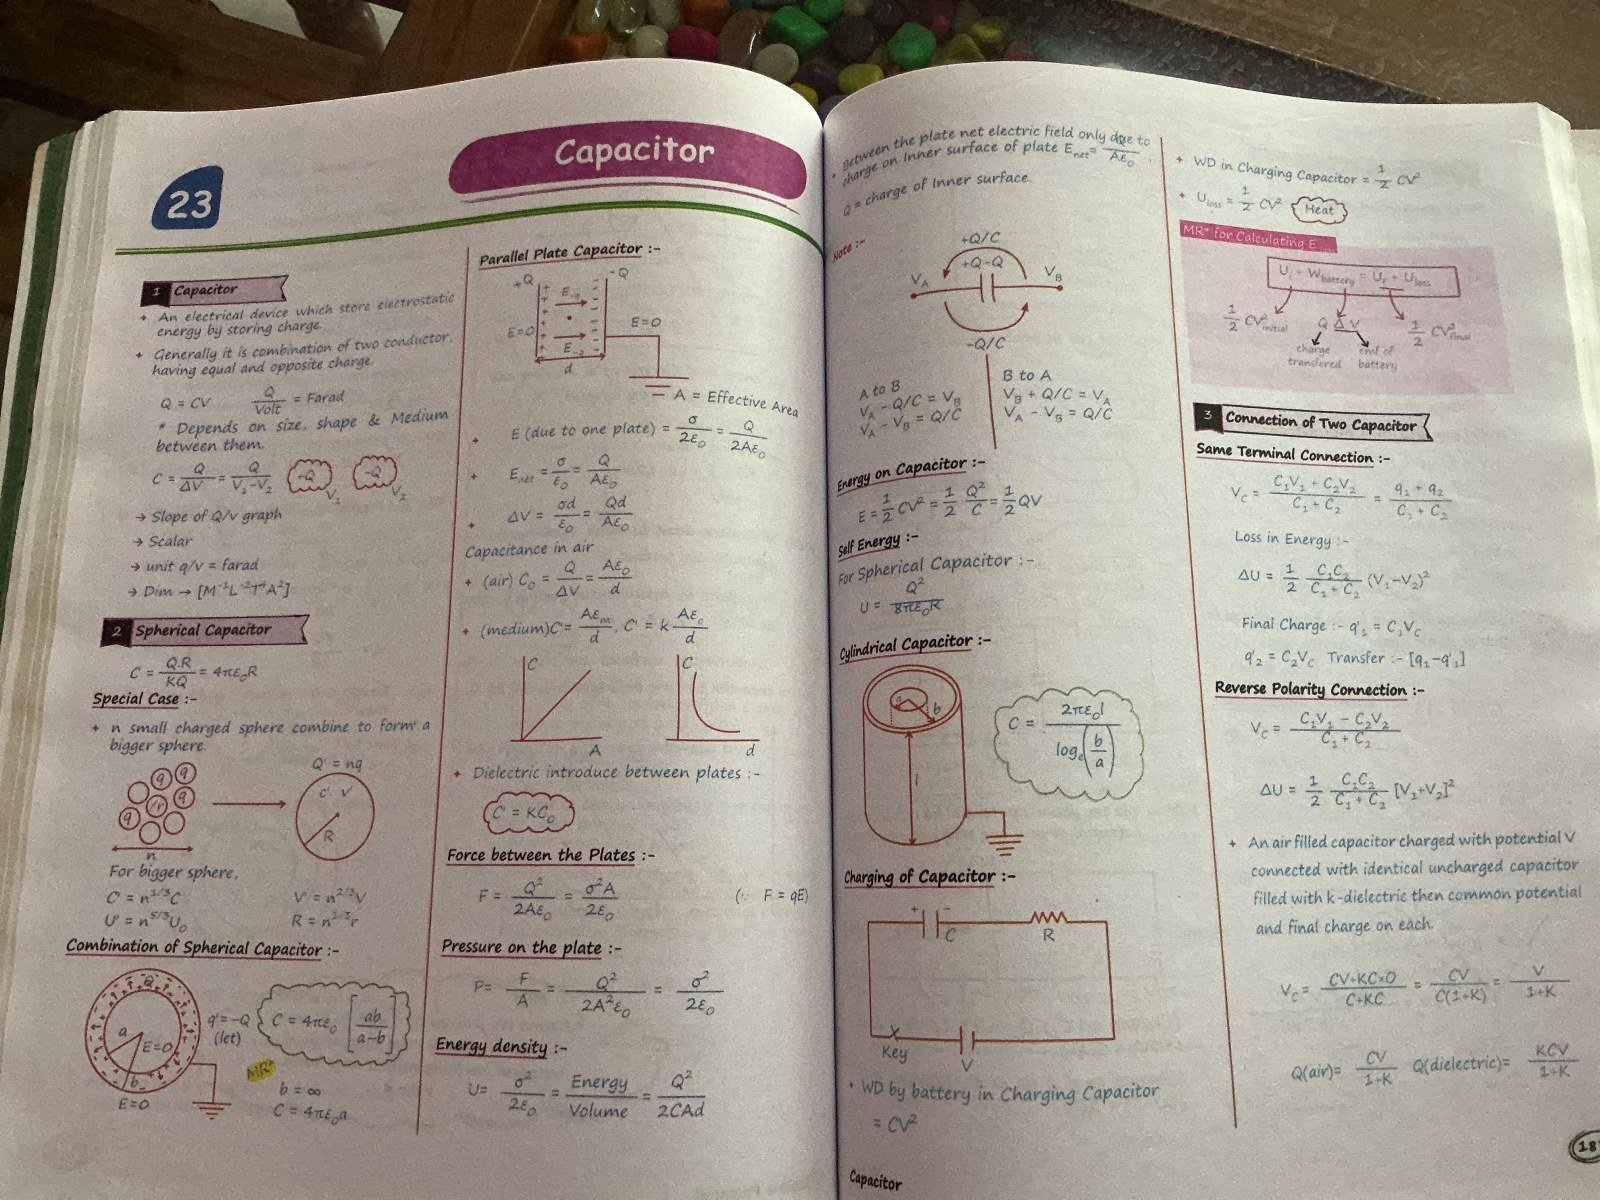 23
Capacitor
1 Capacitor
+ An electrical device which store electrostatic
energy by storing charge.
+ Generally it is combination of two conductor,
having equal and opposite charge.
Q = CV   Q/Volt = Farad
* Depends on size, shape & Medium
between them.
C = Q/ΔV = Q/(V₂-V₂)   +Q V₁   -Q V₂
→ Slope of Q/v graph
→ Scalar
→ unit q/v = farad
→ Dim → [M⁻¹L⁻²T⁴A²]
2 Spherical Capacitor
C = Q.R/KQ = 4πε₀R
Special Case :-
+ n small charged sphere combine to form a
bigger sphere.
q q q r q
n
Q' = nq
C' V'
R
For bigger sphere,
C' = n^(1/3)C   V' = n^(2/3)V
U' = n^(5/3)U₀   R = n^(1/3)r
Combination of Spherical Capacitor :-
Q
a
E=0
b
E=0
q'=-Q
(let)
C = 4πε₀ [ab/(a-b)]
MR*
b = ∞
C = 4πε₀a
Parallel Plate Capacitor :-
+Q   -Q
E=0   E=0
d
A = Effective Area
+ E (due to one plate) = σ/2ε₀ = Q/2Aε₀
+ E_net = σ/ε₀ = Q/Aε₀
+ ΔV = σd/ε₀ = Qd/Aε₀
Capacitance in air
+ (air) C₀ = Q/ΔV = Aε₀/d
+ (medium)C' = Aε_m/d, C' = k Aε₀/d
C   A
C   d
+ Dielectric introduce between plates :-
C' = KC₀
Force between the Plates :-
F = Q²/2Aε₀ = σ²A/2ε₀   (∵ F = qE)
Pressure on the plate :-
P = F/A = Q²/2A²ε₀ = σ²/2ε₀
Energy density :-
U = σ²/2ε₀ = Energy/Volume = Q²/2CAd
+ Between the plate net electric field only due to
charge on Inner surface of plate E_net = Q/Aε₀.
Q = charge of Inner surface.
Note :-
+Q/C
+Q -Q
V_A   V_B
-Q/C
A to B
V_A - Q/C = V_B
V_A - V_B = Q/C
B to A
V_B + Q/C = V_A
V_A - V_B = Q/C
Energy on Capacitor :-
E = 1/2 CV² = 1/2 Q²/C = 1/2 QV
Self Energy :-
For Spherical Capacitor :-
U = Q²/8πε₀R
Cylindrical Capacitor :-
b
l
C = 2πε₀l/logₑ(b/a)
Charging of Capacitor :-
+ -
C   R
Key   V
+ WD by battery in Charging Capacitor
= CV²
Capacitor
+ WD in Charging Capacitor = 1/2 CV²
+ U_loss = 1/2 CV²   Heat
MR* for Calculating E
U_i + W_battery = U_f + U_loss
1/2 CV²_initial   Q ΔV   1/2 CV²_final
charge transfered   emf of battery
3 Connection of Two Capacitor
Same Terminal Connection :-
V_C = (C₁V₁ + C₂V₂)/(C₁ + C₂) = (q₁ + q₂)/(C₁ + C₂)
Loss in Energy :-
ΔU = 1/2 C₁C₂/(C₁ + C₂) (V₁-V₂)²
Final Charge :- q'₁ = C₁V_C
q'₂ = C₂V_C   Transfer :- [q₁-q'₁]
Reverse Polarity Connection :-
V_C = (C₁V₁ - C₂V₂)/(C₁ + C₂)
ΔU = 1/2 C₁C₂/(C₁ + C₂) [V₁+V₂]²
+ An air filled capacitor charged with potential V
connected with identical uncharged capacitor
filled with k-dielectric then common potential
and final charge on each.
V_C = (CV+KC×0)/(C+KC) = CV/C(1+K) = V/(1+K)
Q(air)= CV/(1+K)   Q(dielectric)= KCV/(1+K)